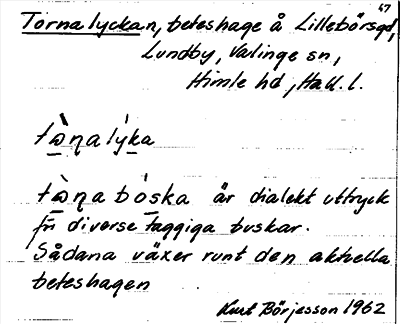 47
Törnalyckan, beteshage å Lillebörsgd,
Lundby, Valinge sn,
Himle hd, Hall. l.
tɷ̀ɳalýka
tɷ̀ɳa bóska är dialekt uttryck
för diverse taggiga buskar.
Sådana växer runt den aktuella
beteshagen
Kurt Börjesson 1962